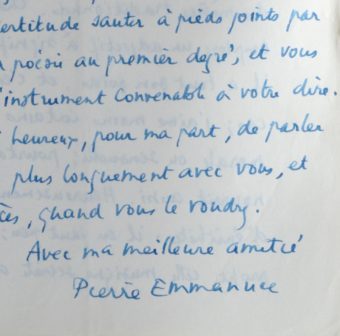 certitude sauter à pieds joints par
poésie au premier degré, et vous
l'instrument convenable à votre dire.
heureux, pour ma part, de parler
plus longuement avec vous, et
, quand vous le voudrez.
Avec ma meilleure amitié
Pierre Emmanuel